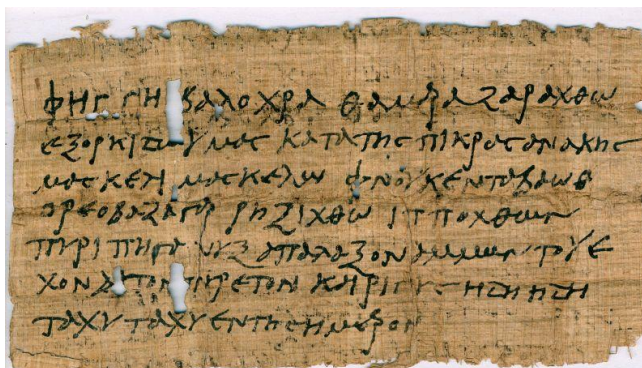 βαλοχρα θαμρα ζαραχθω
εξορκιζω υμας κατα της πικρας αναγκης
μασκελι μασκελλω φνουκενταβαωθ
ορεοβαζαγρα ρηξιχθω ιπποχθων
πυριπηγανυξ απαλαξον αμμων τον ε
χοντα τον πυρετον και ριγος ηδη ηδη
ταχυ ταχυ εν τη σημερον